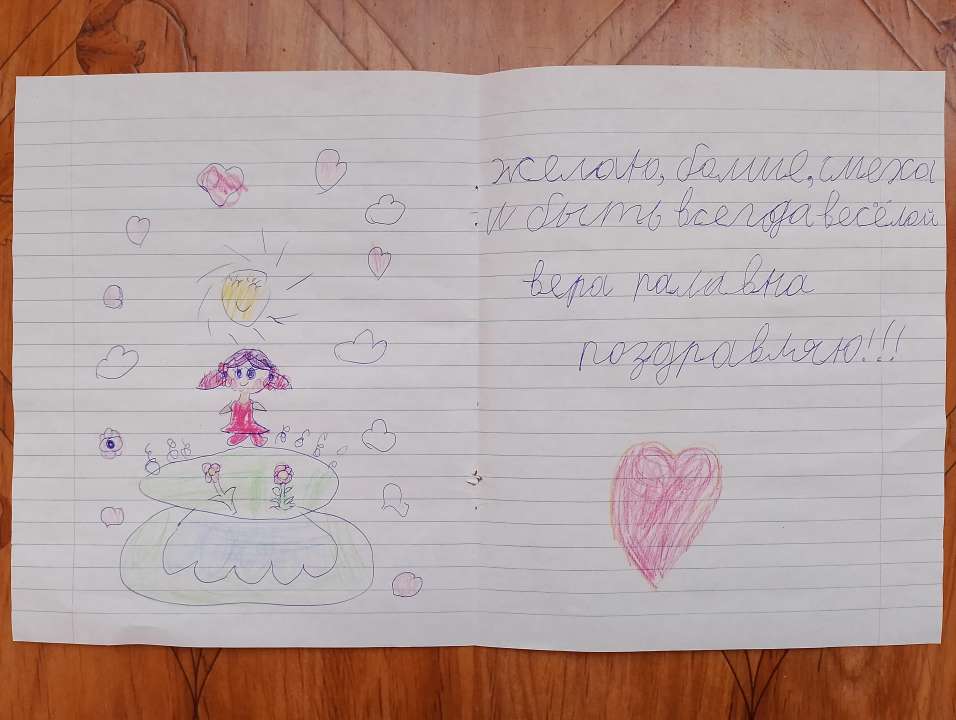 желаю, болше, смеха
и быть всегда весёлой
вера палавна
поздравляю!!!